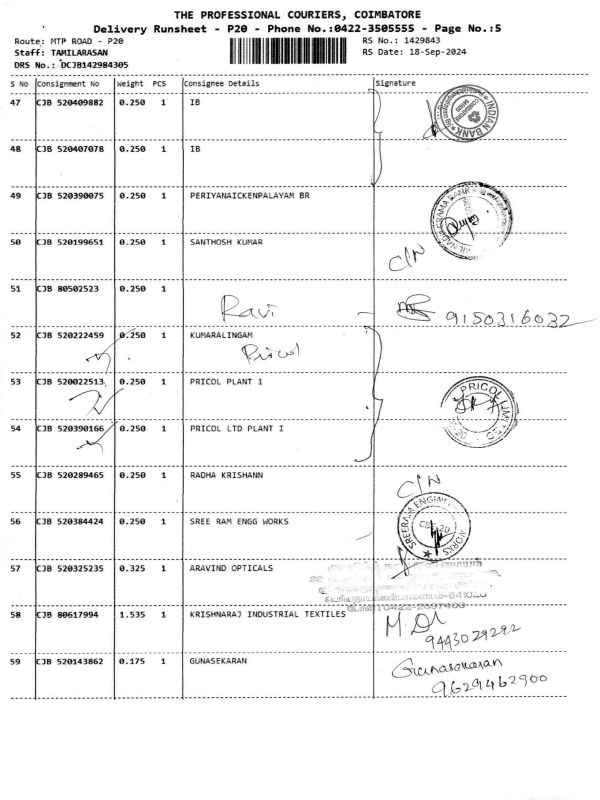 THE PROFESSIONAL COURIERS, COIMBATORE
Delivery Runsheet - P20 - Phone No.:0422-3505555 - Page No.:5
Route: MTP ROAD - P20 RS No.: 1429843
Staff: TAMILARASAN RS Date: 18-Sep-2024
DRS No.: DCJB142984305
S No Consignment No Weight PCS Consignee Details Signature
47 CJB 520409882 0.250 1 IB
INDIAN BANK
48 CJB 520407078 0.250 1 IB
49 CJB 520390075 0.250 1 PERIYANAICKENPALAYAM BR
50 CJB 520199651 0.250 1 SANTHOSH KUMAR C/N
51 CJB 80502523 0.250 1
Ravi 9150316032
52 CJB 520222459 0.250 1 KUMARALINGAM
Pricol
53 CJB 520022513 0.250 1 PRICOL PLANT 1
PRICOL LIMITED
54 CJB 520390166 0.250 1 PRICOL LTD PLANT I
55 CJB 520289465 0.250 1 RADHA KRISHANN C/N
56 CJB 520384424 0.250 1 SREE RAM ENGG WORKS
SREERAM ENGINEERING WORKS
57 CJB 520325235 0.325 1 ARAVIND OPTICALS
58 CJB 80617994 1.535 1 KRISHNARAJ INDUSTRIAL TEXTILES
9443029292
59 CJB 520143862 0.175 1 GUNASEKARAN
Gunasekaran
9629462900